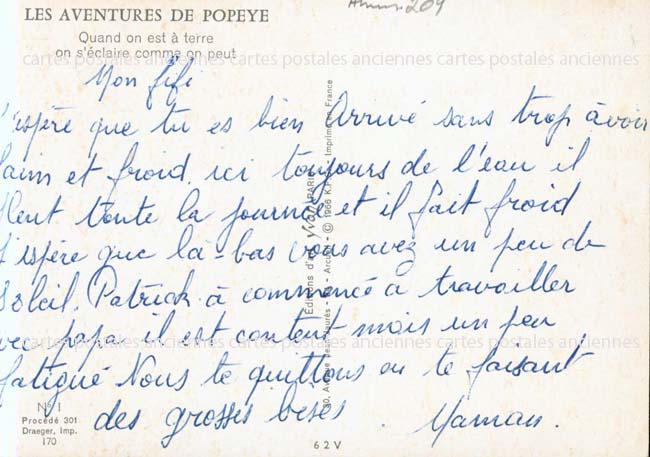 LES AVENTURES DE POPEYE
Quand on est à terre
on s'éclaire comme on peut
cartes postales anciennes cartes postales anciennes cartes postales anciennes
Mon fifi
J'espère que tu es bien Arrivé sans trop avoir
faim et froid. ici toujours de l'eau il
Pleut toute la journée et il fait froid
J'espère que là-bas vous avez un peu de
soleil. Patrick à commencé a travailler
avec papa il est content mais un peu
cartes postales anciennes cartes postales anciennes cartes postales anciennes
fatigué Nous te quittons en te faisant
des grosses bises. Maman.
Editions d'art Yvon PARIS
Jean Jaurès - Arcueil - © 1966 K.F.S. - Imprimé en France
N° 1
Procédé 301
Draeger, Imp.
170
62V
209